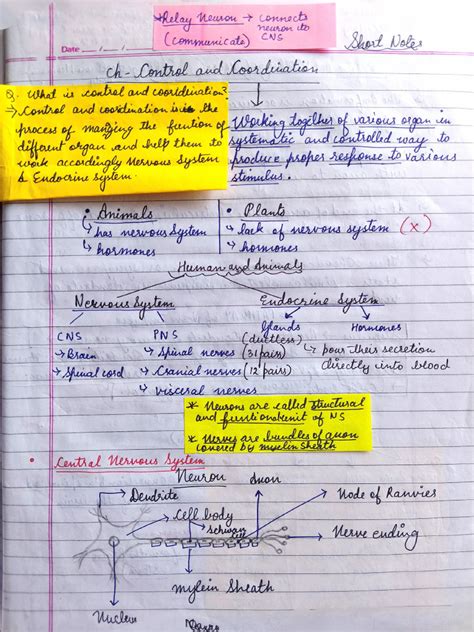 *Relay Neuron → connects
neuron to
(communicate) CNS
Date
Short Notes
ch- Control and Coordination
Q- What is control and coordination?
→ Control and coordination is the
process of manging the funtion of
different organ and help them to
work accordingly Nervous System
& Endocrine System.
Working together of various organ in
systematic and controlled way to
produce proper response to various
stimulus.
• Animals
↳ has nervous system
↳ hormones
• Plants
↳ lack of nervous system (x)
↳ hormones
Human and Animals
Nervous System
Endocrine System
CNS
↳ Brain
↳ Spinal cord
PNS
↳ Spinal nerves (31 pairs)
↳ Cranial nerves (12 pairs)
↳ visceral nerves
Glands
(ductless)
Hormones
↳ pour their secretion
directly into blood
* Neurons are called structural
and funtional unit of NS
* Nerves are bundles of axon
covered by myelin sheath
• Central Nervous System
Neuron
Axon
Dendrite
Node of Ranvies
Cell body
Schwan
cell
Nerve ending
Mylein Sheath
Nucleus